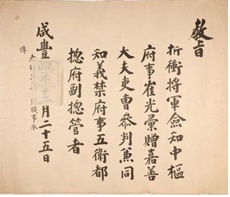 敎旨
折衝將軍僉知中樞
府事崔光彙贈嘉善
大夫吏曹叅判兼同
知義禁府事五衛都
摠府副摠管者
咸豐 年十二月二十五日